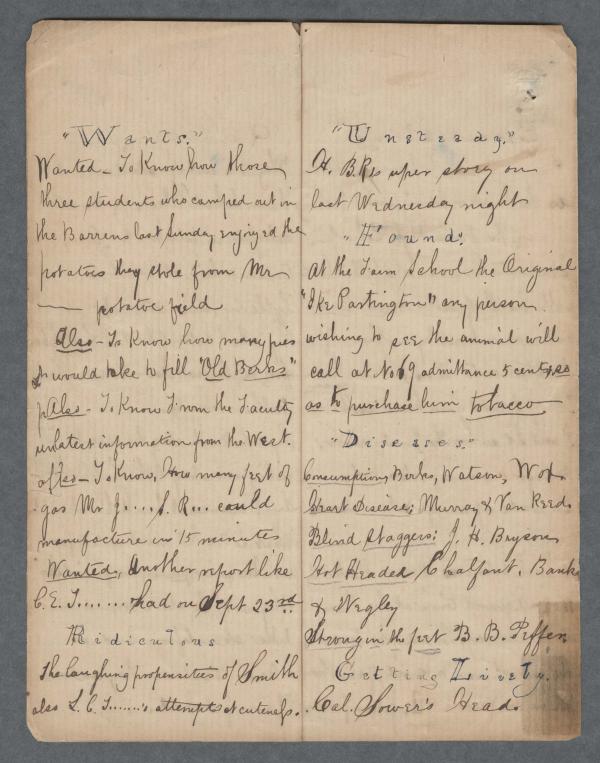 "Wants."
Wanted - To Know how those
three students who camped out in
the Barrens last Sunday enjoyed the
potatoes they stole from Mr
—— potatoe field
Also - To Know how many pies
it would take to fill "Old Berks"
Also - To Know From the Faculty
latest information from the West.
Also - To Know, How many feet of
gas Mr J.... S. R... could
manufacture in 15 minutes
Wanted, Another report like
C. E. T....... had on Sept 23rd
Ridiculous
The laughing propensities of Smith
also L. C. T.......'s attempts at cuteness.
"Unsteady."
H. B. R's uper story on
last Wednesday night
"Found".
At the Farm School the Original
"Ike Partington" any person
wishing to see the animal will
call at No 69 admittance 5 cents, so
as to purchase him tobacco
"Diseases."
Consumption, Berks, Watson, Wox
Heart Disease; Murray & Van Reed.
Blind Staggers; J. H. Bryson
Hot Headed Chalfant, Banks
& Negley
Strong in the feet B. B. Peffer
Getting Lively.
Cal. Sower's Head.